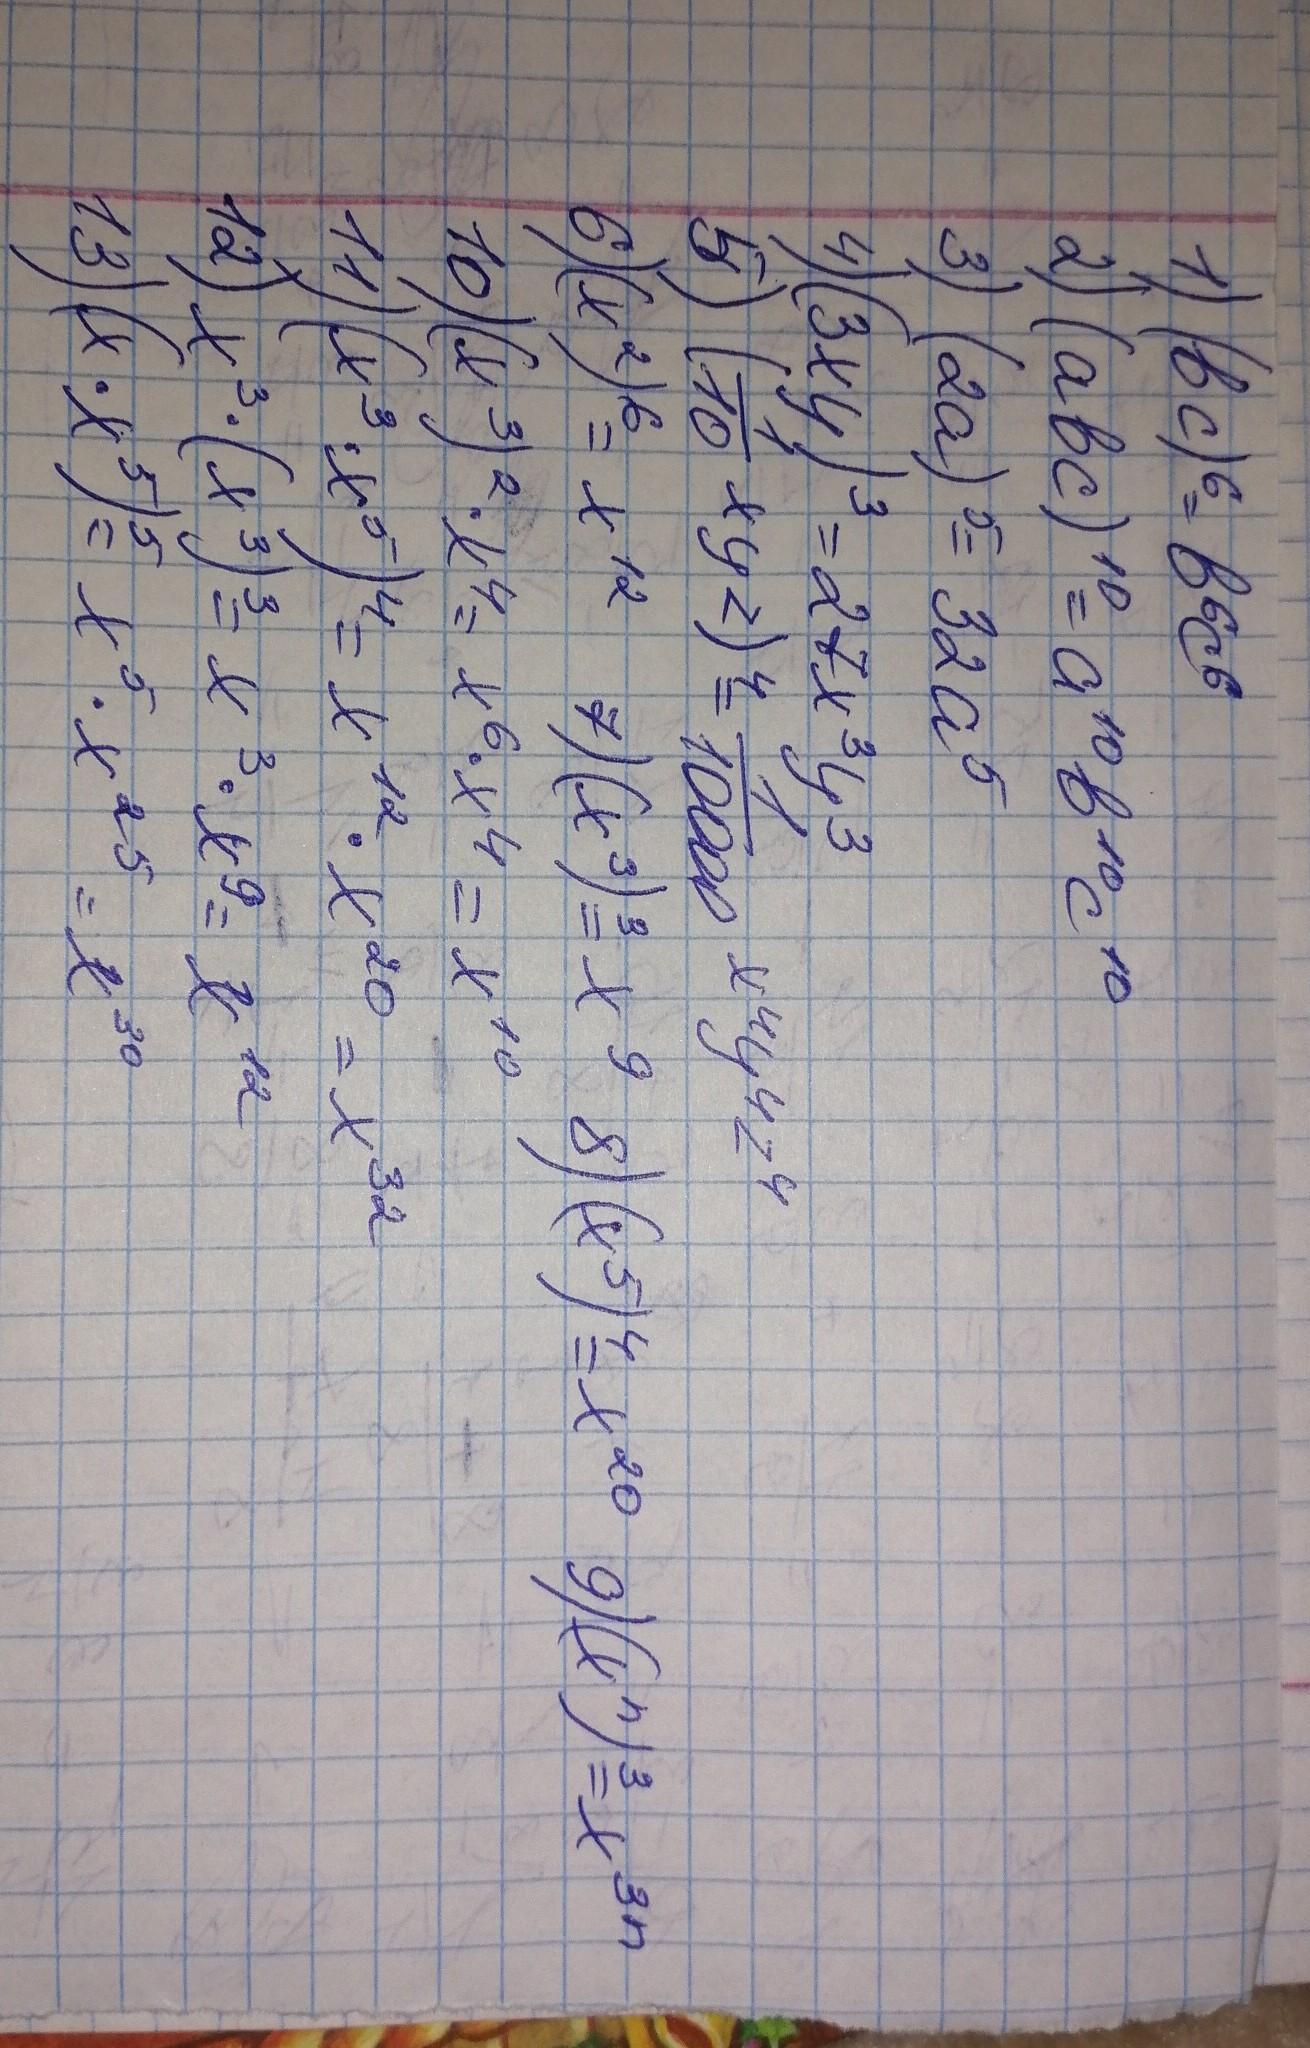 1) (bc)⁶ = b⁶c⁶
2) (abc)¹⁰ = a¹⁰b¹⁰c¹⁰
3) (2a)⁵ = 32a⁵
4) (3xy)³ = 27x³y³
5) (1/10 xyz)⁴ = 1/10000 x⁴y⁴z⁴
6) (x²)⁶ = x¹² 7) (x³)³ = x⁹ 8) (x⁵)⁴ = x²⁰ 9) (xⁿ)³ = x³ⁿ
10) (x³)² · x⁴ = x⁶ · x⁴ = x¹⁰
11) (x³ · x⁵)⁴ = x¹² · x²⁰ = x³²
12) x³ · (x³)³ = x³ · x⁹ = x¹²
13) (x · x⁵)⁵ = x⁵ · x²⁵ = x³⁰